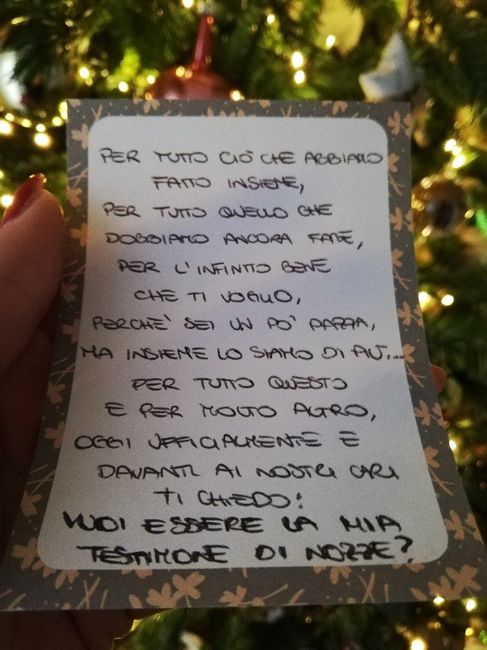 PER TUTTO CIÒ CHE ABBIAMO
FATTO INSIEME,
PER TUTTO QUELLO CHE
DOBBIAMO ANCORA FARE,
PER L'INFINITO BENE
CHE TI VOGLIO,
PERCHÈ SEI UN PO' PAZZA,
MA INSIEME LO SIAMO DI PIÙ...
PER TUTTO QUESTO
E PER MOLTO ALTRO,
OGGI UFFICIALMENTE E
DAVANTI AI NOSTRI CARI
TI CHIEDO:
VUOI ESSERE LA MIA
TESTIMONE DI NOZZE?